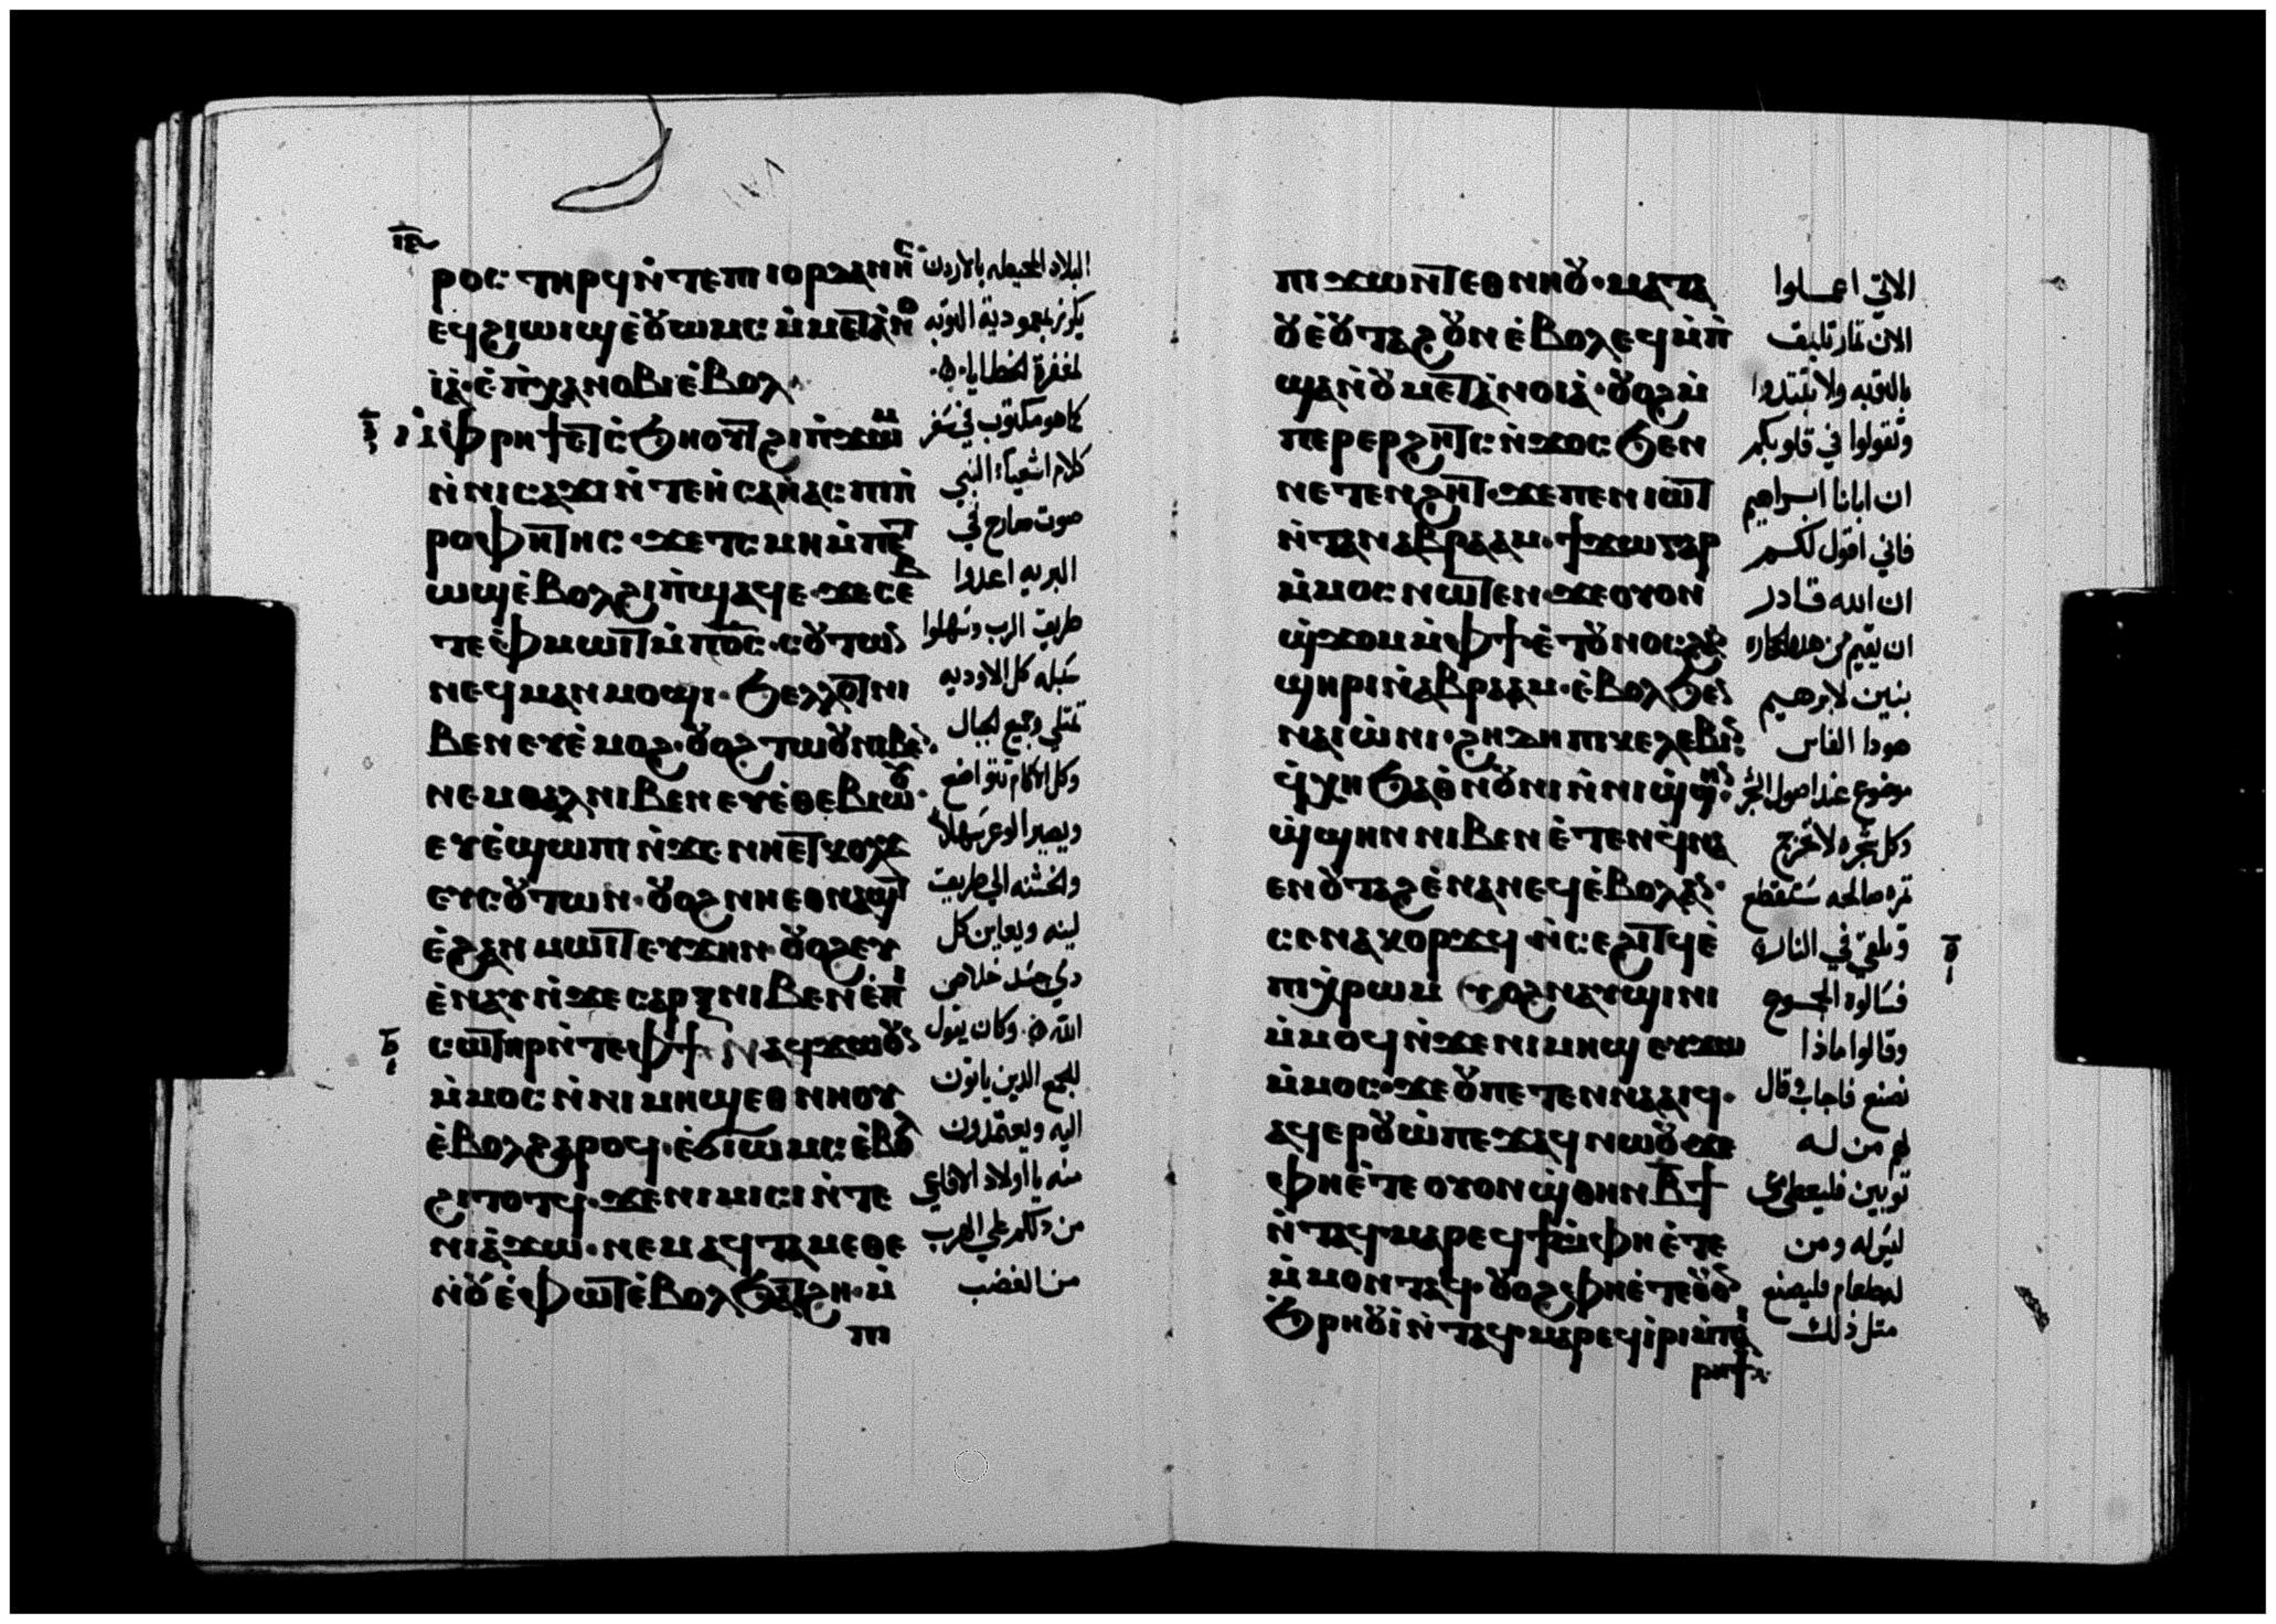 ⲓⲉ
ⲣⲟⲥ ⲧⲏⲣϥ ⲛ̀ⲧⲉ ⲡⲓⲓⲟⲣⲇⲁⲛⲏⲥ
ⲉϥϩⲓⲱⲓϣ ⲉ̀ⲟⲩⲱⲙⲥ ⲙ̀ⲙⲉⲧⲁⲛⲟ
ⲓⲁ̀· ⲉ̀ⲡⲭⲁⲛⲟⲃⲓ ⲉ̀ⲃⲟⲗ
ⲙ̀ⲫⲣⲏϯ ⲉⲧⲥ̀ϧⲏⲟⲩⲧ ϩⲓ ⲡ̀ϫⲱⲙ
ⲛ̀ⲛⲓⲥⲁϫⲓ ⲛ̀ⲧⲉ ⲏ̀ⲥⲁⲏ̀ⲁⲥ ⲡⲓⲡ̀
ⲣⲟⲫⲏⲧⲏⲥ· ϫⲉ ⲧ̀ⲥⲙⲏ ⲙ̀ⲡⲉⲧ
ⲱϣ ⲉ̀ⲃⲟⲗ ϩⲓ ⲡ̀ϣⲁϥⲉ· ϫⲉ ⲥⲉⲃ
ⲧⲉ ⲫ̀ⲙⲱⲓⲧ ⲙ̀ⲡⲟ̅ⲥ̅· ⲥⲟⲩⲧⲱⲛ
ⲛⲉϥⲙⲁⲛⲙⲟϣⲓ· ϧⲉⲗⲗⲟⲧ ⲛⲓ
ⲃⲉⲛ ⲉⲩⲉ̀ⲙⲟϩ· ⲟⲩⲟϩ ⲧⲱⲟⲩ ⲛⲓⲃⲉⲛ
ⲛⲉⲙ ⲑⲁⲗ ⲛⲓⲃⲉⲛ ⲉⲩⲉ̀ⲑⲉⲃⲓⲱⲟⲩ·
ⲉⲩⲉ̀ϣⲱⲡⲓ ⲛ̀ϫⲉ ⲛⲏⲉⲧⲕⲟⲩϫ
ⲉⲩⲥⲟⲩⲧⲱⲛ· ⲟⲩⲟϩ ⲛⲏⲉⲑⲛⲁϣⲧ
ⲉ̀ϩⲁⲛⲙⲱⲓⲧ ⲉⲩϫⲏⲛ· ⲟⲩⲟϩ ⲉⲩ
ⲉ̀ⲛⲁⲩ ⲛ̀ϫⲉ ⲥⲁⲣⲝ ⲛⲓⲃⲉⲛ ⲉ̀ⲡⲓ
ⲥⲱⲧⲏⲣ ⲛ̀ⲧⲉ ⲫϯ ⲛⲁϥϫⲱ ⲟⲩⲛ
ⲙ̀ⲙⲟⲥ ⲛ̀ⲛⲓⲙⲏϣ ⲉⲑⲛⲏⲟⲩ
ⲉ̀ⲃⲟⲗ ϩⲁⲣⲟϥ· ⲉ̀ϭⲓⲱⲙⲥ ⲉ̀ⲃⲟⲗ
ϩⲓⲧⲟⲧϥ· ϫⲉ ⲛⲓⲙⲓⲥⲓ ⲛ̀ⲧⲉ
ⲛⲓⲁ̀ϫⲱ· ⲛⲓⲙ ⲁϥⲧⲁⲙⲉ ⲑⲏ
ⲛⲟⲩ ⲉ̀ⲫⲱⲧ ⲉ̀ⲃⲟⲗ ϧⲁⲧϩⲏ· ⲙ̀
ⲡⲓ
البلاد المحيطه بالاردن
يكرز بمعمودية التوبه
لمغفرة الخطايا
كما هو مكتوب في سفر
كلام اشعياء النبي
صوت صارخ في
البريه اعدوا
طريق الرب وسهلوا
سبله كل الاوديه
تمتلي وجميع الجبال
وكل الاكام تتواضع
ويصير الوعر سهلا
والخشنه الي طريق
لينه ويعاين كل
ذي جسد خلاص
الله وكان يقول
للجمع الذين ياتون
اليه ويعتمدون
منه يا اولاد الافاعي
من دلكم علي الهرب
من الغضب
ⲡⲓϫⲱⲛⲧ ⲉⲑⲛⲏⲟⲩ· ⲙⲁⲧⲁ
ⲟⲩⲉ̀ ⲟⲩⲧⲁϩ ⲟⲩⲛ ⲉ̀ⲃⲟⲗ ⲉϥⲙ̀ⲡ̀
ϣⲁ ⲛ̀ⲟⲩⲙⲉⲧⲁⲛⲟⲓⲁ̀· ⲟⲩⲟϩ ⲙ̀
ⲡⲉⲣⲉⲣϩⲏⲧⲥ ⲛ̀ϫⲟⲥ ϧⲉⲛ
ⲛⲉⲧⲉⲛϩⲏⲧ· ϫⲉ ⲡⲉⲛⲓⲱⲧ
ⲛ̀ⲧⲁⲛ ⲁⲃⲣⲁⲁⲙ· ϯϫⲱ ⲅⲁⲣ
ⲙ̀ⲙⲟⲥ ⲛⲱⲧⲉⲛ· ϫⲉ ⲟⲩⲟⲛ
ϣ̀ϫⲟⲙ ⲙ̀ⲫϯ· ⲉ̀ⲧⲟⲩⲛⲟⲥ ϩⲁⲛ
ϣⲏⲣⲓ ⲛ̀ⲁⲃⲣⲁⲁⲙ· ⲉ̀ⲃⲟⲗ ϧⲉⲛ
ⲛⲁⲓⲱ̀ⲛⲓ· ϩⲏⲇⲏ ⲡⲓⲕⲉⲗⲉⲃⲓⲛ
ϥ̀ⲭⲏ ϧⲁⲑ̀ⲛⲟⲩⲛⲓ ⲛ̀ⲛⲓϣ̀ϣⲏⲛ
ϣ̀ϣⲏⲛ ⲛⲓⲃⲉⲛ ⲉ̀ⲧⲉⲛϥ̀ⲛⲁ
ⲉⲛ ⲟⲩⲧⲁϩ ⲉ̀ⲛⲁⲛⲉϥ ⲉ̀ⲃⲟⲗ ⲁⲛ·
ⲥⲉⲛⲁⲕⲟⲣϫϥ ⲛ̀ⲥⲉϩⲓⲧϥ ⲉ̀
ⲡⲓⲭ̀ⲣⲱⲙ ⲟⲩⲟϩ ⲛⲁⲩϣⲓⲛⲓ
ⲙ̀ⲙⲟϥ ⲛ̀ϫⲉ ⲛⲓⲙⲏϣ ⲉⲩϫⲱ
ⲙ̀ⲙⲟⲥ· ϫⲉ ⲟⲩ ⲡⲉⲧⲉⲛⲛⲁⲁⲓϥ·
ⲁϥⲉⲣⲟⲩⲱ̀ ⲡⲉϫⲁϥ ⲛⲱⲟⲩ ϫⲉ
ⲫⲏⲉ̀ⲧⲉ ⲟⲩⲟⲛ ϣ̀ⲑⲏⲛ ⲃ̅ϯ
ⲛ̀ⲧⲁϥ ⲙⲁⲣⲉϥϯ ⲙ̀ⲫⲏⲉ̀ⲧⲉ
ⲙ̀ⲙⲟⲛ ⲧⲁϥ· ⲟⲩⲟϩ ⲫⲏⲉ̀ⲧⲉ ⲟⲩⲟⲛ
ϧ̀ⲣⲏⲟⲩⲓ̀ ⲛ̀ⲧⲁϥ ⲙⲁⲣⲉϥⲓ̀ⲣⲓ ⲙ̀ⲡⲁⲓ
ⲣⲏϯ
الاتي اعملوا
الان ثمار تليق
بالتوبه ولا تبتدوا
وتقولوا في قلوبكم
ان ابانا ابراهيم
فاني اقول لكم
ان الله قادر
ان يقيم من هذه الحجاره
بنين لابرهيم
هوذا الفاس
موضوع عند اصول الشجر
وكل شجره لا تخرج
ثمره صالحه ستقطع
وتلقي في النار
فسالوه الجموع
وقالوا ماذا
نصنع فاجاب وقال
لهم من له
ثوبين فليعطي
ليس له ومن
له طعام فليصنع
مثل ذلك